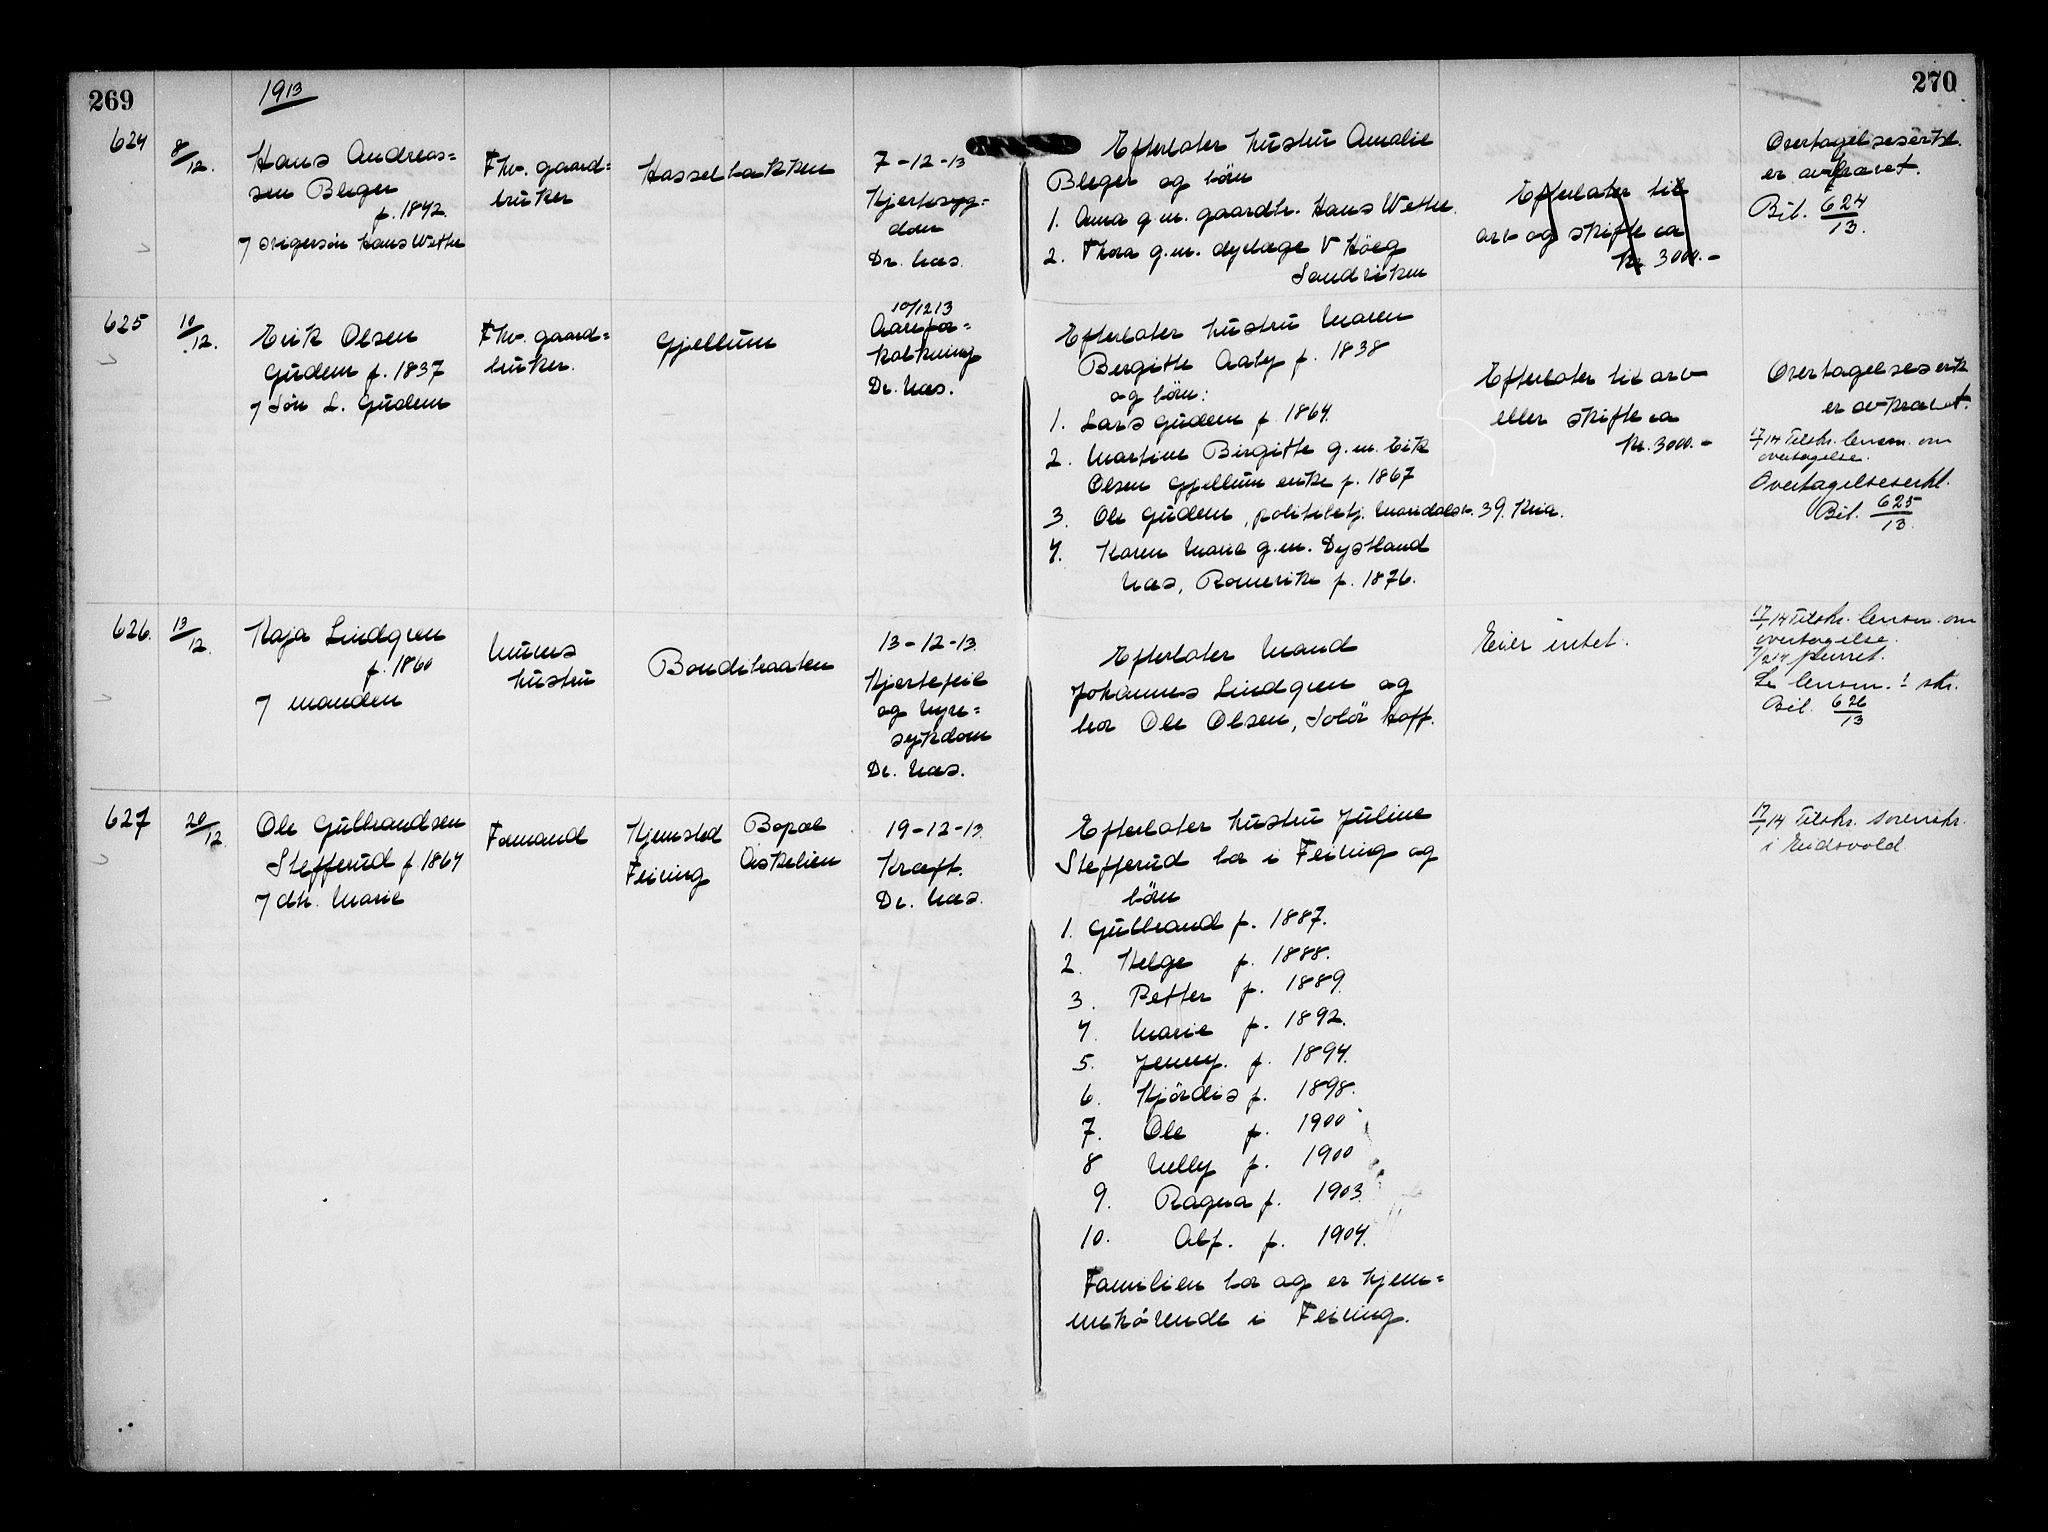 269
1913
270
624
8/12.
Hans Andreas=
sen Bleger
f. 1842.
7 svigersön Hans Wethe
Fhv. gaard=
bruker
Hasselbakken
7-12-13
Hjertesyg=
dom
Dr. Næs.
Efterlater hustru Amalie
Bleger og börn
1. Anna g.m. gaardbr. Hans Wethe
2. Thora g.m. dyrlæge V Höeg
Sandviken
Efterlater til
arv og skifte ca
kr. 3000.-
Overtagelseserkl.
er avkrævet.
Bil. 624/13.
625
10/12.
Erik Olsen
Gudem f. 1837
7 Sön L. Gudem
Fhv. gaard=
bruker.
Gjellum
10/12 13
Aarefor=
kalkning
Dr. Næs.
Efterlater hustru Maren
Bergitte Aaby f. 1838
og börn:
1. Lars Gudem f. 1864.
2. Martine Birgitte g.m. Erik
Olsen Gjellum enke f. 1867
3. Ole Gudem, politibetj. Mandalsv. 39. Kria.
4. Karen Marie g.m. Dystland
Næs, Romerike f. 1876.
Efterlater til arv
eller skifte ca
kr. 3000.-
Overtagelseserk
er avkrævet.
17/1 14 Tilskr. lensm. om
overtagelse.
Overtagelseserkl.
Bil. 625/13.
626.
13/12.
Kaja Lindgren
f. 1860
7 manden
Murers
hustru
Bondibraaten
13-12-13
Hjertefeil
og Nyre=
sykdom
Dr. Næs.
Efterlater Mand
Johannes Lindgren og
bror Ole Olsen, Solör Hoff.
Eier intet.
17/1 14 Tilskr. lensm. om
overtagelse.
7/2 14 purret.
Se lensm.! skr.
Bil. 626/13
627
20/12
Ole Gulbrandsen
Stefferud f. 1864
7 dtr. Marie
Formand
Hjemsted
Feiring
Bopæl
Askelien
19-12-13.
Kræft.
Dr. Næs.
Efterlater hustru Juline
Stefferud bor i Feiring og
börn
1. Gulbrand f. 1887.
2. Helge f. 1888.
3. Petter f. 1889.
4. Marie f. 1892.
5. Jenny. f. 1894.
6. Hjördis f. 1898.
7. Ole f. 1900
8 Nelly f. 1900
9. Ragna f. 1903.
10. Alf. f. 1904.
Familien bor og er hjem=
mehörende i Feiring.
17/1 14 Tilskr. sorenskr.
i Eidsvold.